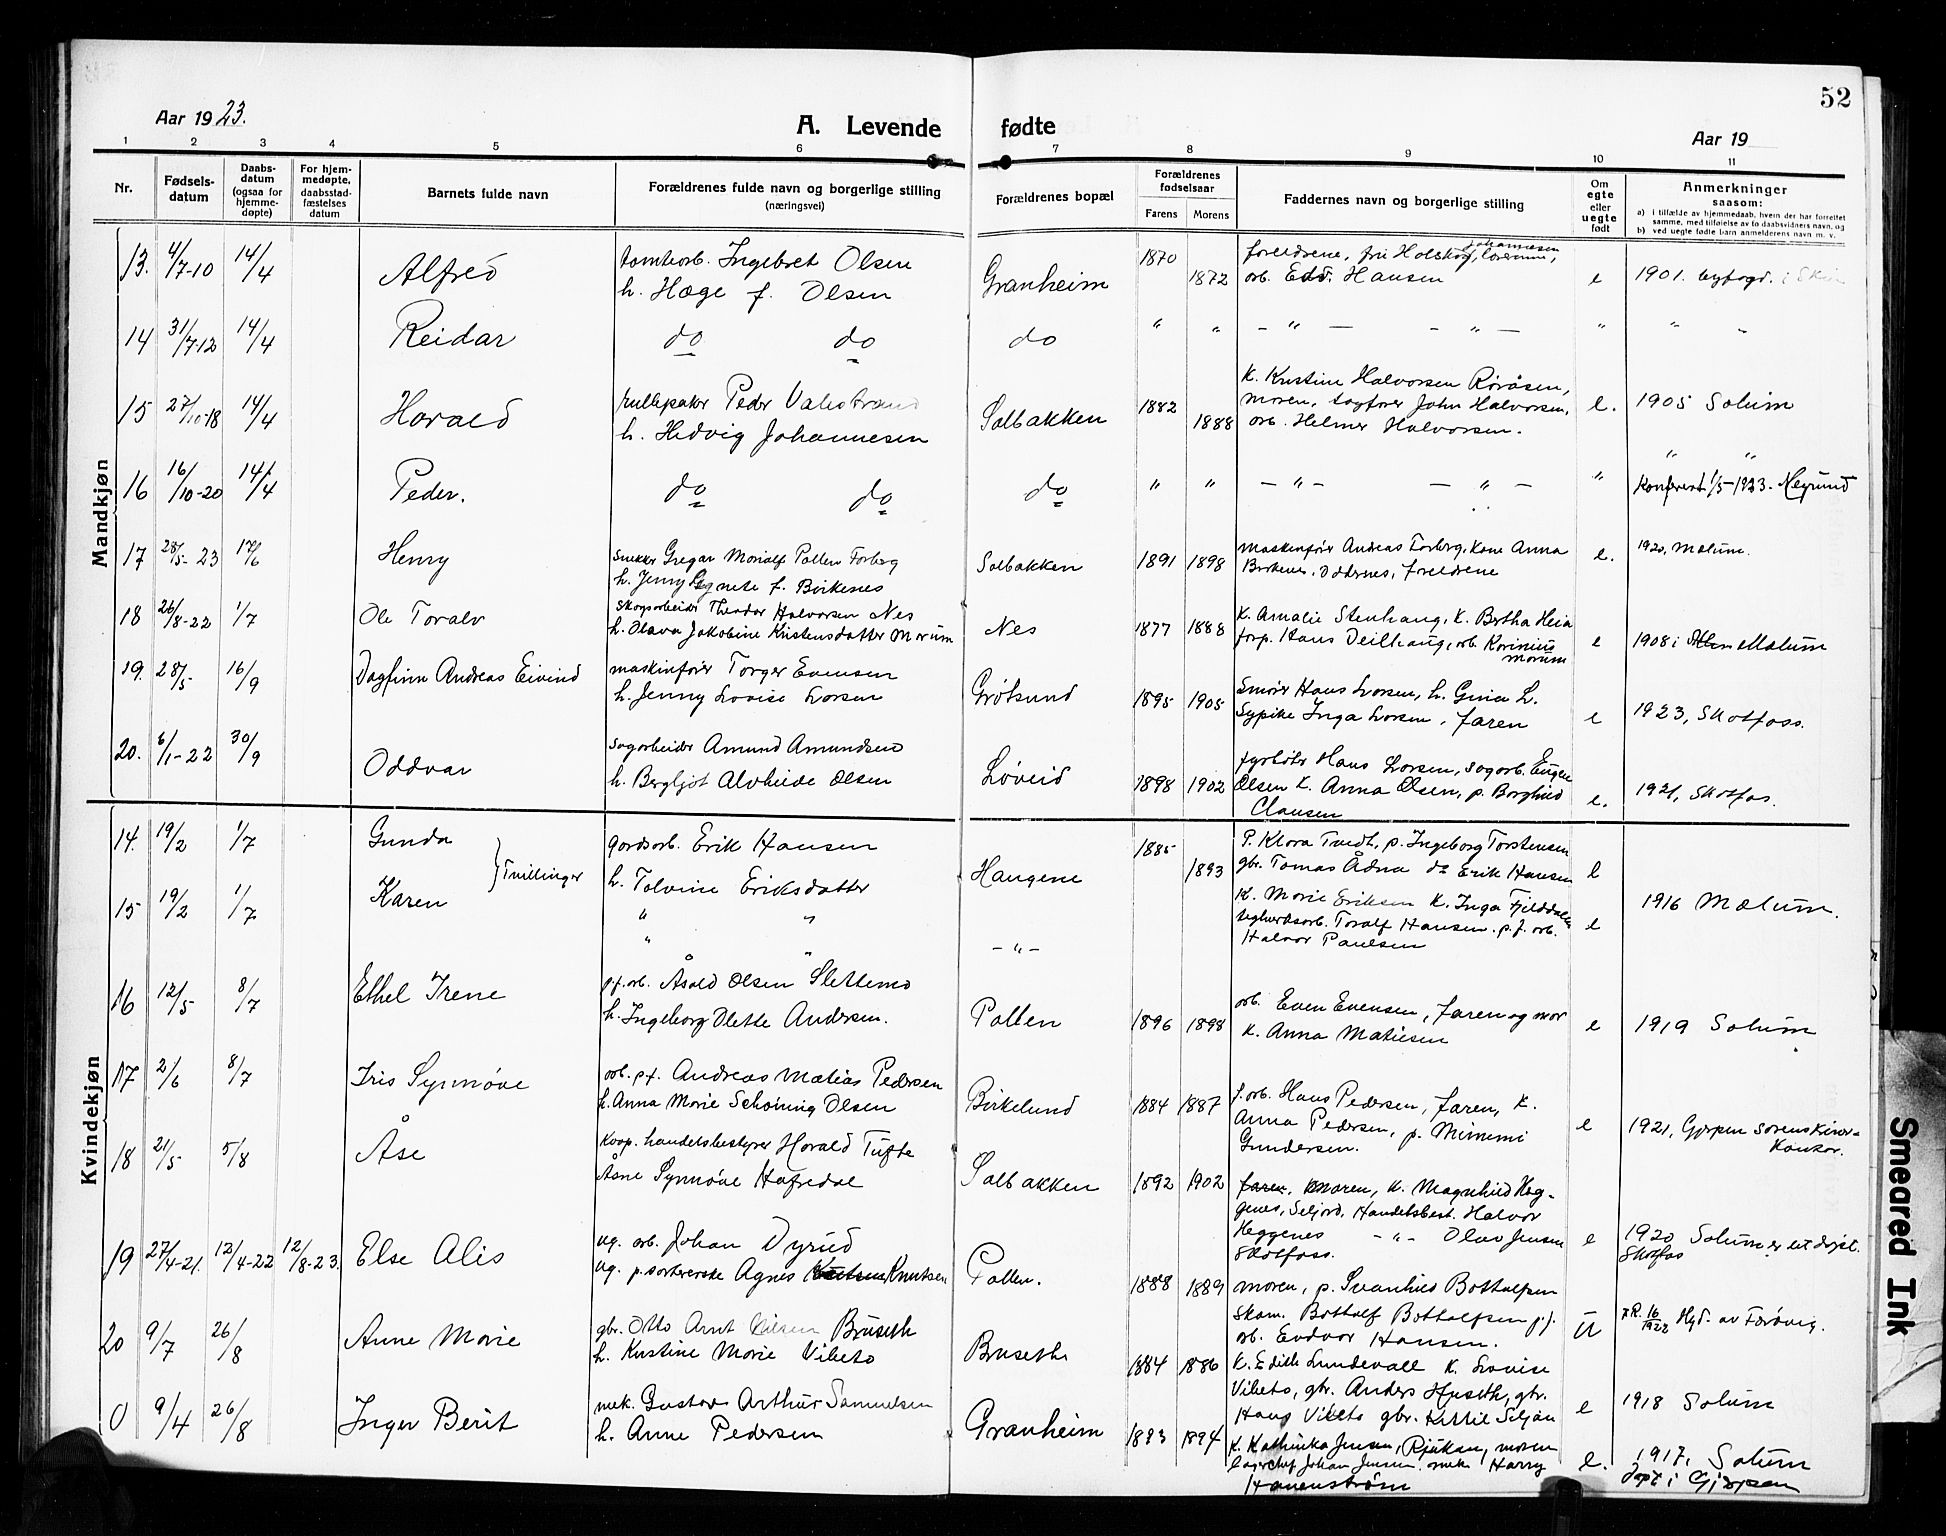 52
Aar 1923.
A. Levende fødte
Aar 19
1 2 3 4 5 6 7 8 9 10 11
Nr.
Fødsels-datum
Daabs-datum (ogsaa for hjemme-døpte)
For hjem-medøpte, daabsstad-fæstelses datum
Barnets fulde navn
Forældrenes fulde navn og borgerlige stilling
(næringsvei)
Forældrenes bopæl
Forældrenes fødselsaar
Farens Morens
Faddernes navn og borgerlige stilling
Om egte eller uegte født
Anmerkninger
saasom:
a) i tilfælde av hjemmedaab, hvem der har forrettet
samme, med tilføielse av to daabsvidners navn, og
b) ved uegte fødte barn anmelderens navn m. v.
Mandkjøn
13. 4/7-10 14/4 Alfred
tomtearb. Ingebret Olsen
h. Hæge f. Olsen
Granheim 1870 1872
arb. Edv. Hansen
e 1901. byfogd. i Skien
14 31/7-12 14/4 Reidar do do do " " - " - - " - " " "
15 27/10-18 14/4 Harald
Peder Valestrand
h. Hedvig Johannesen
Solbakken 1882 1888
K. Kristine Halvorsen Röråsen,
moren, togfører John Halvorsen,
arb. Helmer Halvorsen.
e. 1905 Solum
16 16/10-20 14/4 Peder. do do do " " - " - - " - " " "
Konferert 1/5-1923.
17 28/5-23 17/6 Henry
snekker Gregar Pollen Forberg
h. Jenny Agnete f. Birkenes
Solbakken 1891 1898
maskinfører Andreas Forberg, Kone Anna
Birkenes, Oddernes, foreldrene
e. 1920, Mælum.
18 26/8-22 1/7 Ole Toralv
skogsarbeider Theodor Halvorsen Nes
h. Olava Jakobine Kristensdatter Morum
Nes 1877 1888
K. Amalie Stenhaug, K. Bertha Heia
forp. Hans Deilhaug, arb. Karinius
Morum
e 1908 i Mælum
19. 28/5 16/9 Dagfinn Andreas Eivind
maskinfører Torger Evensen
h. Jenny Lovise Larsen
Grøtsund 1895 1905
Smører Hans Larsen, h. Gina L.
Sypike Inga Larsen, faren
e 1923, Skotfoss.
20. 6/1-22 30/9 Oddvar
sagarbeider Amund Amundsen
h. Bergljot Alvhilde Olsen
Løveid 1898 1902
fyrbøter Hans Larsen, sagarb. Eugen
Olsen K. Anna Olsen, p. Borghild
Clausen
e. 1921, Skotfos.
Kvindekjøn
14. 19/2 1/7 Gunda
Tvillinger
gardsarb. Erik Hansen
h. Tolvine Eriksdatter
Haugene 1885 1893
P. Klara Tvedt, p. Ingeborg Torstensen
gbr. Tomas Ådna do Erik Hansen
e
15 19/2 1/7 Karen " " " " - " -
K. Marie Eriksen K. Inga Fjelddalen
teglverksarb. Toralf Hansen. p.f. arb.
Halvor Paulsen
e 1916 Mælum.
16 12/5 8/7 Ethel Irene
p.f. arb. Åsold Olsen Slettemo
h. Ingeborg Olette Andersen.
Pollen 1896 1898
arb. Even Evensen, faren og mor
K. Anna Matiesen
e 1919 Solum
17 2/6 8/7 Iris Synnøve
arb. p.f. Andreas Matias Pedersen
h. Anna Marie Schøning Olsen
Birkelund 1884 1887
f. arb. Hans Pedersen, faren, K.
Anna Pedersen, p. Mimmi
Gundersen.
e 1921, Gjerpen sorenskriver-
kontor.
18 21/5 5/8 Åse
Koop. handelsbestyrer Harald Tufte
Åsne Synnøve Hafredal
Solbakken 1892 1902
faren, moren, K. Magnhild Heg-
genes, Seljord, Handelsbest. Halvor
Heggenes - " - Olav Jensen
Skotfoss.
e 1920 Solum
Skotfos
19 27/4-21. 12/4-22 12/8-23. Else Alis
ug. arb. Johan Dyrud
ug. p. sortererske Agnes Knutsen
Pollen. 1888 1889
moren, p. Svanhild Bottolfsen
Skom. Bottolf Bottolfsen p.f.
arb. Endvar Hansen.
U
16/1922
20 9/7 26/8 Anne Marie
gbr. Otto Arnt Nilsen Bruseth
h. Kristine Marie Vibeto
Bruseth 1884 1886
K. Edith Lundevall K. Lovise
Vibeto, gbr. Anders Huseth, gbr.
Hans Vibeto gbr. Kittil Seljan
e 1918 Solum
0 9/4 26/8 Inger Berit
mek. Gustav Arthur Samuelsen
h. Anne Pedersen
Granheim 1893 1894
K. Kathinka Jensen, Rjukan, moren
lagerchef Johan Jensen. mek. Harry
e. 1917, Solum
døpt i Gjerpen
Smeared Ink